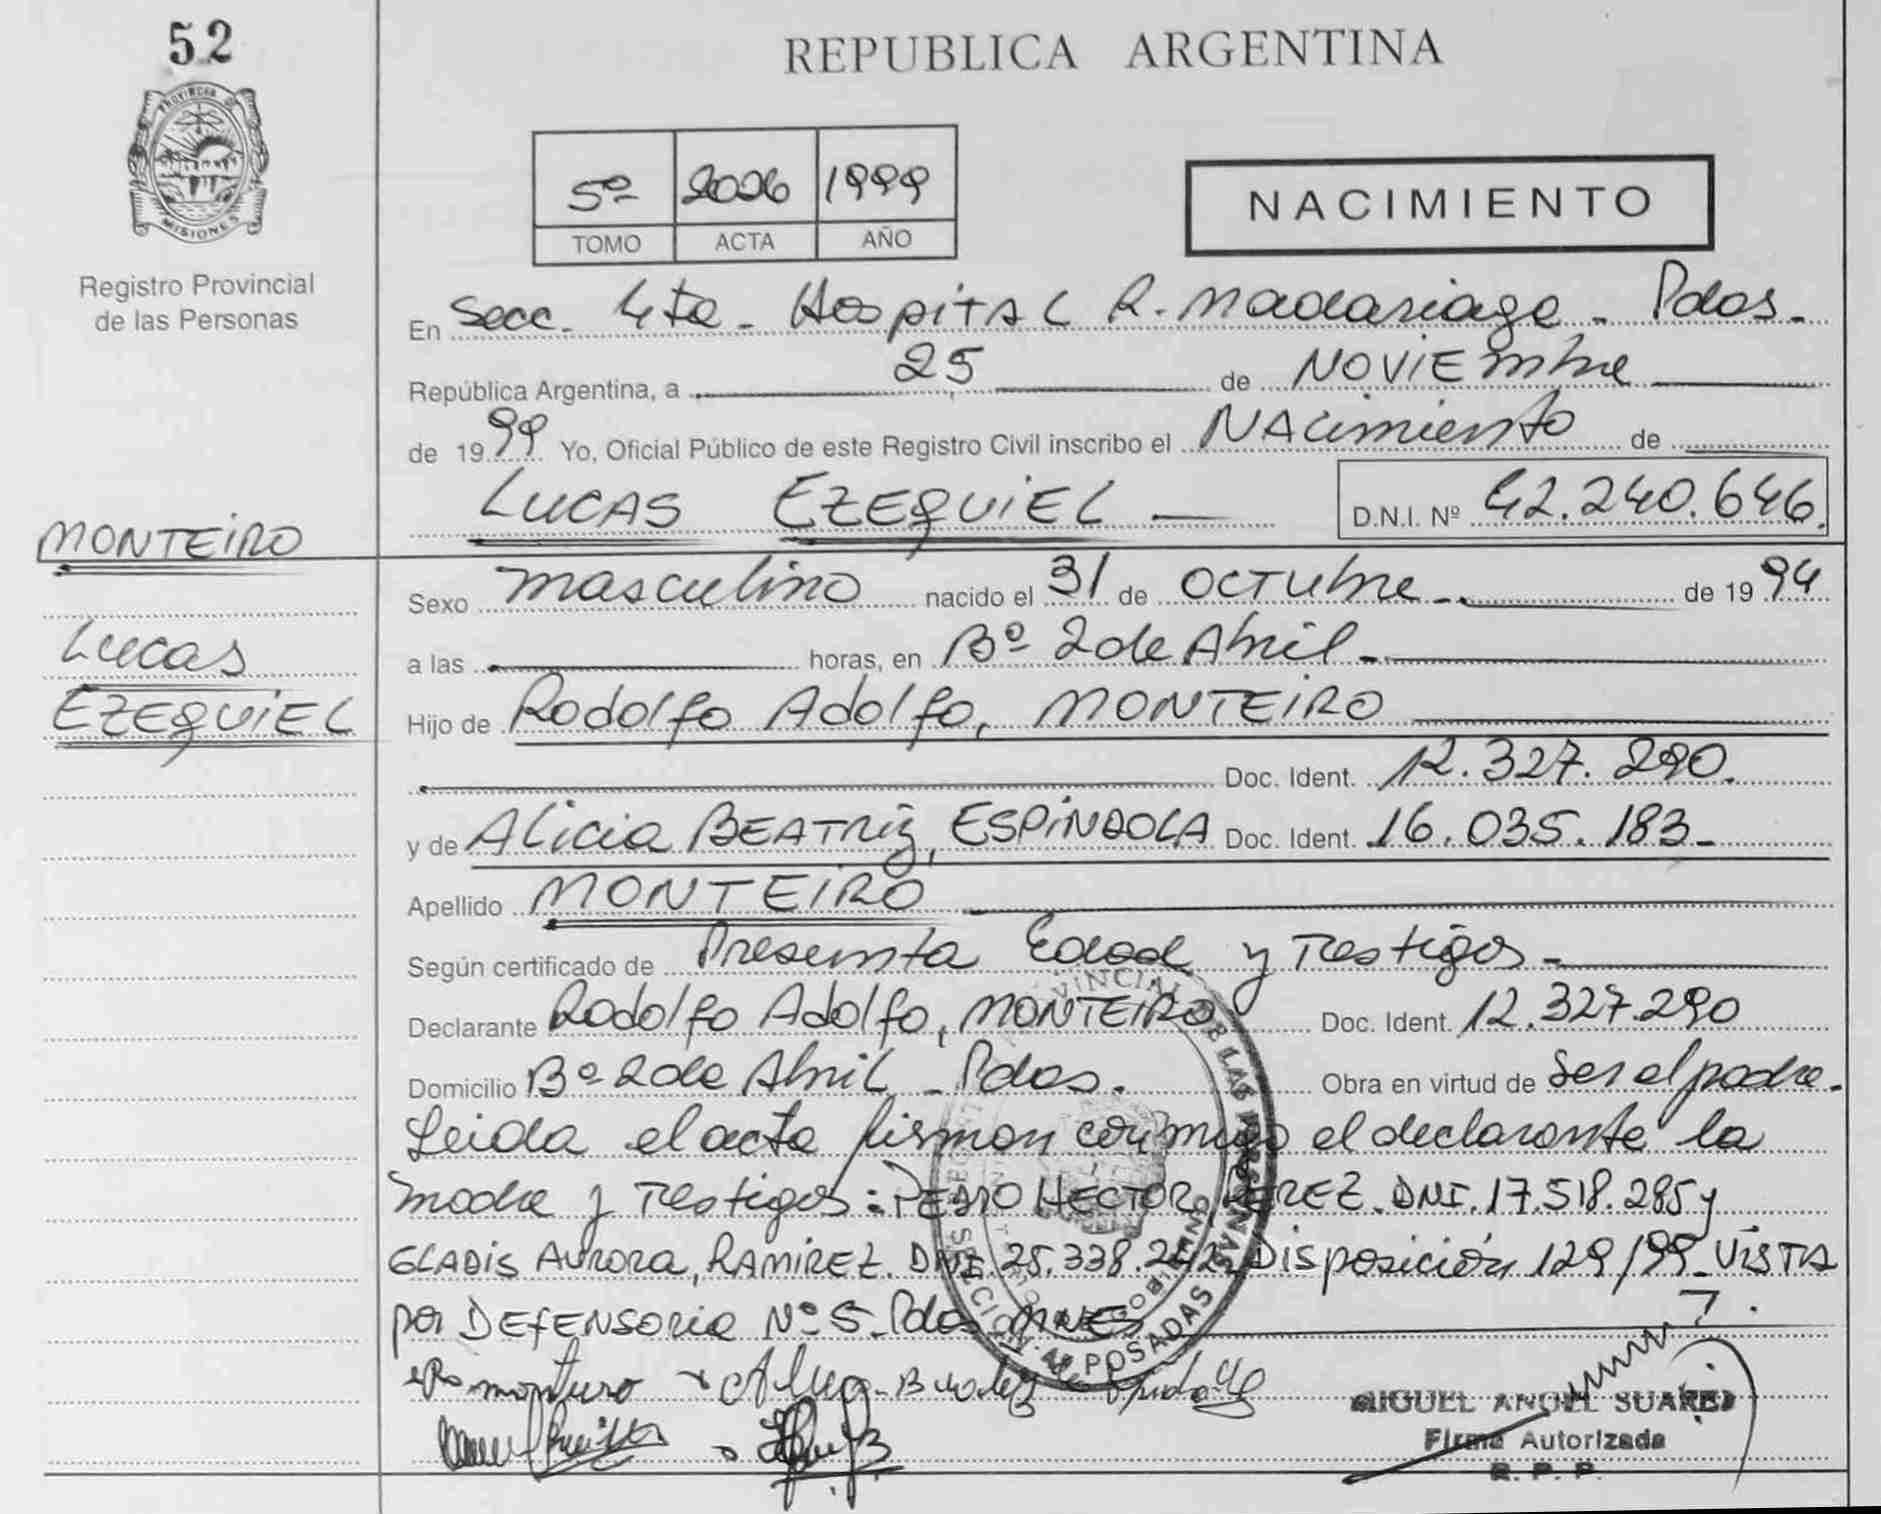 52
REPUBLICA ARGENTINA
PROVINCIA DE
MISIONES
Registro Provincial
de las Personas
5º 2026 1999
TOMO ACTA AÑO
NACIMIENTO
En Secc. 4ta - Hospital R. Madariaga - Pdas.
República Argentina, a 25 de Noviembre
de 1999 Yo, Oficial Público de este Registro Civil inscribo el Nacimiento de
LUCAS EZEQUIEL D.N.I. Nº 42.240.646.
MONTEIRO
Lucas
EZEQUIEL
Sexo masculino nacido el 31 de Octubre de 1994
a las horas, en Bº 2 de Abril
Hijo de Rodolfo Adolfo, MONTEIRO
Doc. Ident. 12.327.290.
y de Alicia BEATRiz, ESPINDOLA Doc. Ident. 16.035.183
Apellido MONTEIRO
Según certificado de Presunta Edad y Testigos
Declarante Rodolfo Adolfo, MONTEIRO Doc. Ident. 12.327.290
Domicilio Bº 2 de Abril - Pdas. Obra en virtud de Ser el padre.
Leida el acta firman conmigo el declarante la
madre y Testigos: PEDRO HECTOR, PEREZ. DNI. 17.518.285 y
GLADIS AURORA, RAMIREZ. DNI. 25.338.242. Disposición 129/99 - VISTA
por DEFENSORIA Nº 5 - Pdas MNES
MIGUEL ANGEL SUAREZ
Firma Autorizada
R. P. P.